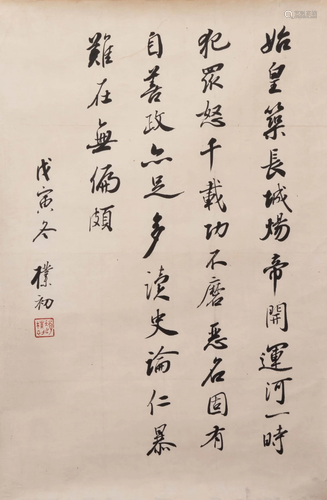 始皇築長城煬帝開運河一時
犯眾怒千載功不磨惡名固有
自善政亦足多读史論仁暴
難在無偏頗
戊寅冬 樸初